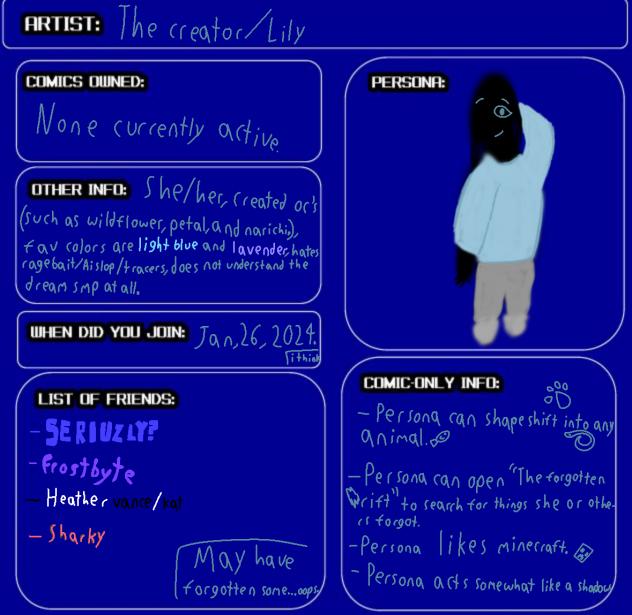 ARTIST: The creator/Lily
COMICS OWNED:
None currently active.
OTHER INFO: She/her, created oc's
(such as wildflower, petal, and narichi),
fav colors are light blue and lavender, hates
ragebait/Aislop/tracers, does not understand the
dream smp at all.
WHEN DID YOU JOIN: Jan, 26, 2024.
i think
LIST OF FRIENDS:
- SERIUZLY?
- frostbyte
- Heather vance/kat
- Sharky
May have
forgotten some...oops
PERSONA:
COMIC-ONLY INFO:
- Persona can shapeshift into any
animal.
- Persona can open "The forgotten
rift" to search for things she or othe-
rs forgot.
- Persona likes minecraft.
- Persona acts somewhat like a shadow